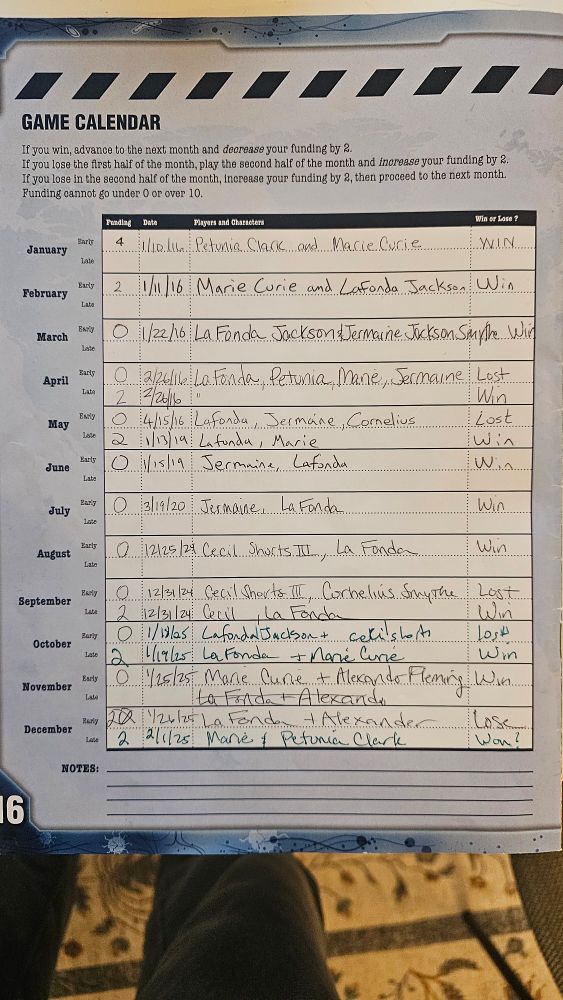 GAME CALENDAR
If you win, advance to the next month and decrease your funding by 2.
If you lose the first half of the month, play the second half of the month and increase your funding by 2.
If you lose in the second half of the month, increase your funding by 2, then proceed to the next month.
Funding cannot go under 0 or over 10.
Funding Date Players and Characters Win or Lose ?
January Early 4 1/10/16 Petunia Clark and Marie Curie WIN
Late
February Early 2 1/11/16 Marie Curie and Lafonda Jackson Win
Late
March Early 0 1/22/16 La Fonda Jackson & Jermaine Jackson Smythe Win
Late
April Early 0 2/26/16 La Fonda, Petunia, Marie, Jermaine Lost
Late 2 2/26/16 " Win
May Early 0 4/15/16 Lafonda, Jermaine, Cornelius Lost
Late 2 1/13/19 Lafonda, Marie Win
June Early 0 1/15/19 Jermaine, Lafonda Win
Late
July Early 0 3/19/20 Jermaine, La Fonda Win
Late
August Early 0 12/25/24 Cecil Shorts III, La Fonda Win
Late
September Early 0 12/31/24 Cecil Shorts III, Cornelius Smythe Lost
Late 2 12/31/24 Cecil, La Fonda Win
October Early 0 Lafonda Jackson + lost
Late 2 1/19/25 La Fonda + Marie Curie Win
November Early 0 1/25/25 Marie Curie + Alexando Fleming Win
Late La Fonda + Alexando
December Early 1/26/25 La Fonda + Alexander Lose
Late 2 2/1/25 Marie & Petunia Clark Won?
NOTES:
16